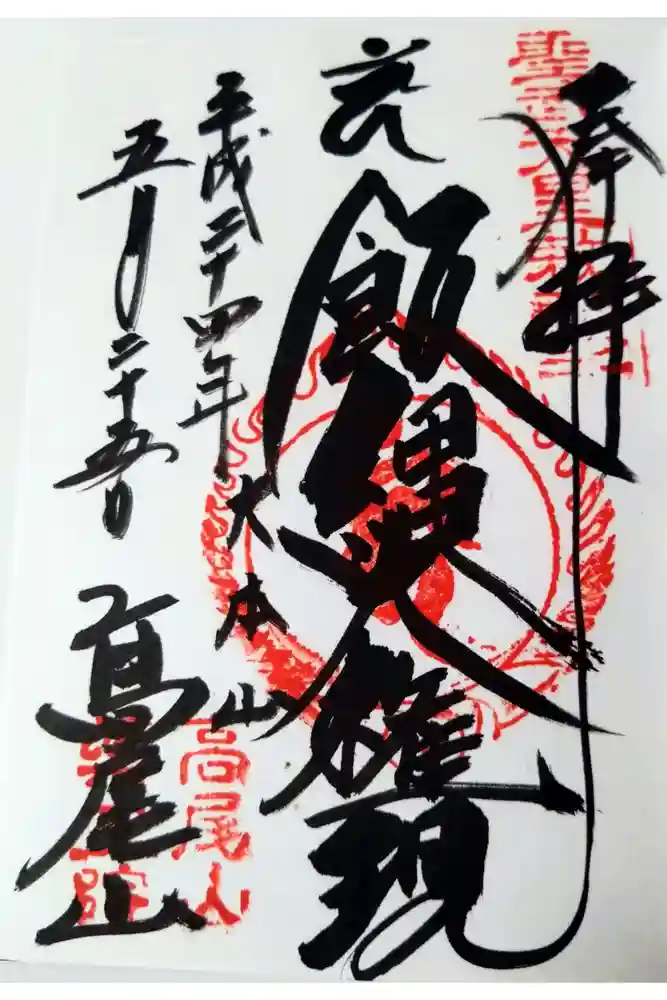 奉拝
飯縄大権現
平成二十四年
五月二十五日
大本山
高尾山
高尾山